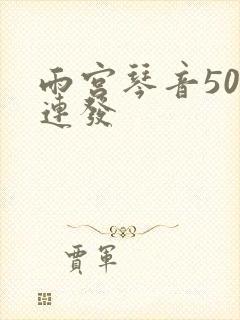 雨宮琴音50
連發
賈軍